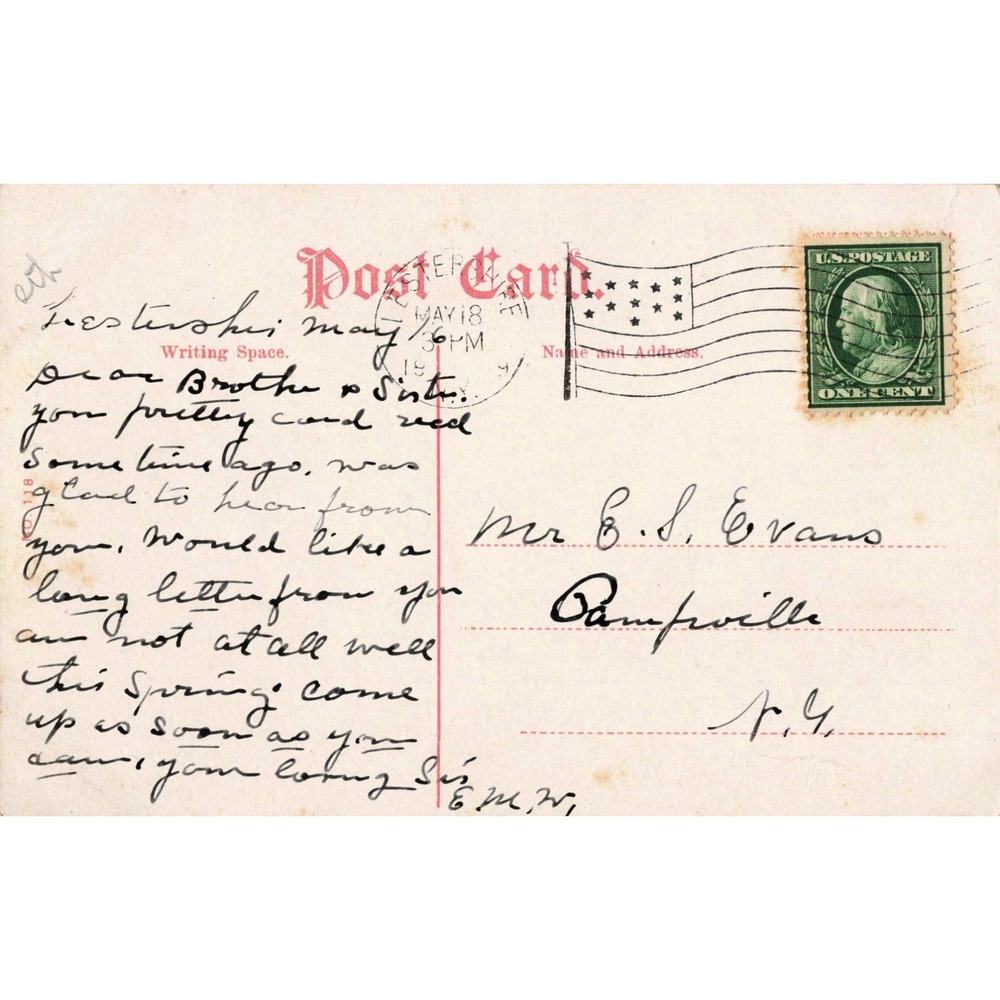 Post Card.
LESTERSHIRE
MAY 18
3 PM
19 9
N.Y.
U.S. POSTAGE
ONE CENT
Writing Space.
Name and Address.
NO. 118
Lestershi May 16
Dear Brothe & Siste.
you pretty card recd
Some time ago. was
glad to hear from
you. Would like a
long letter from you
am not at all well
this Spring. come
up as soon as you
can, your loving Sis
E. M. W.
Mr E. S. Evans
Campville
N. Y.